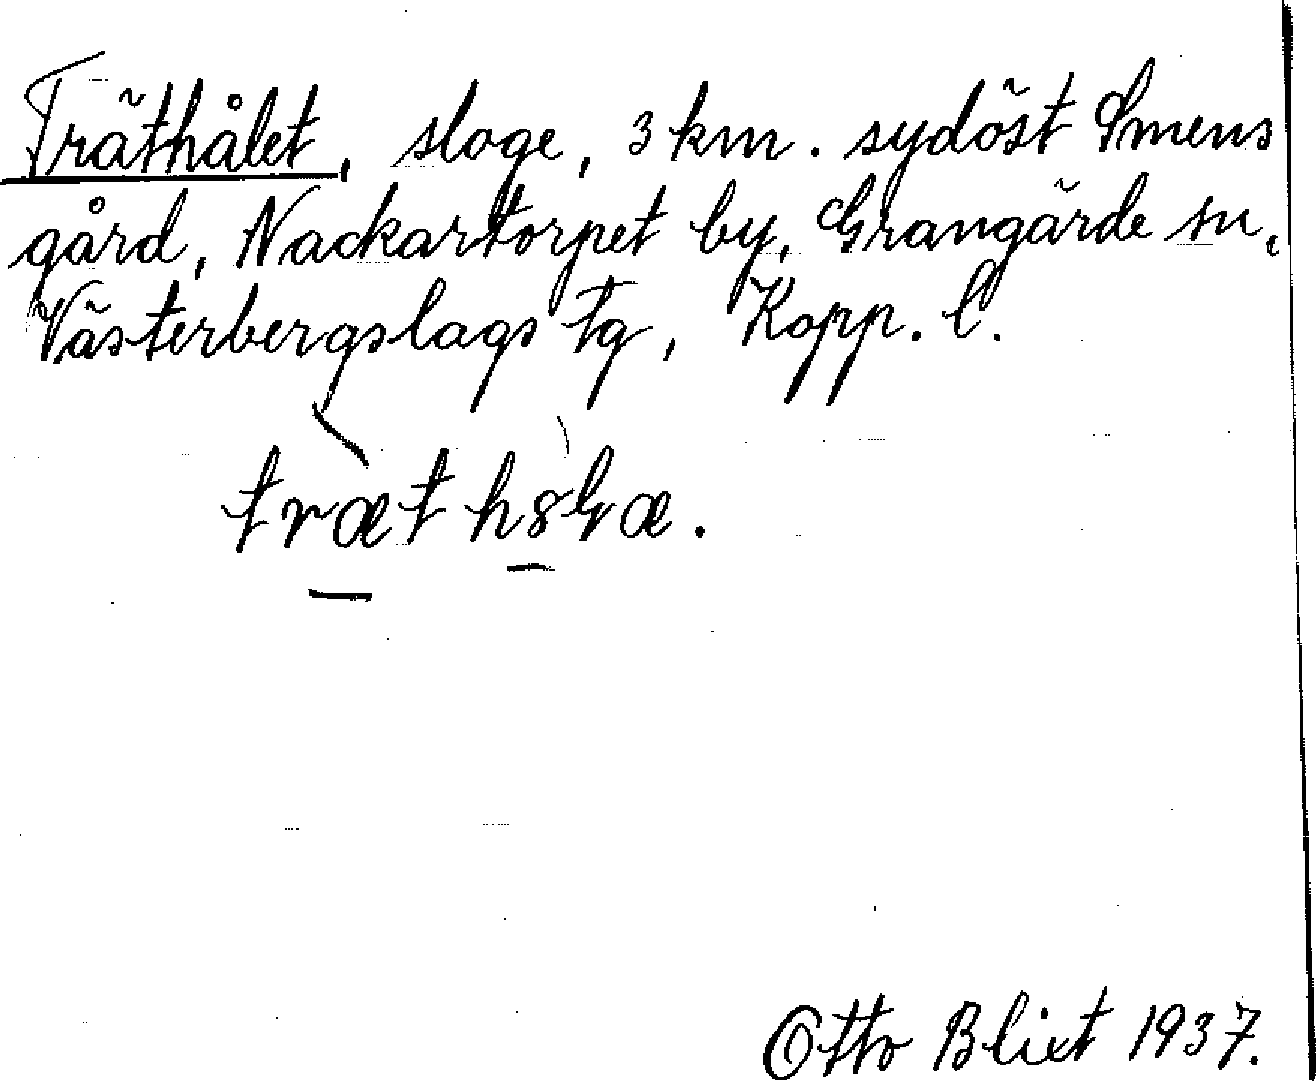 Träthålet, sloge, 3 km. sydöst Smens
gård, Nackartorpet by, Grangärde sn,
Västerbergslags tg, Kopp. l.
Otto Blixt 1937.